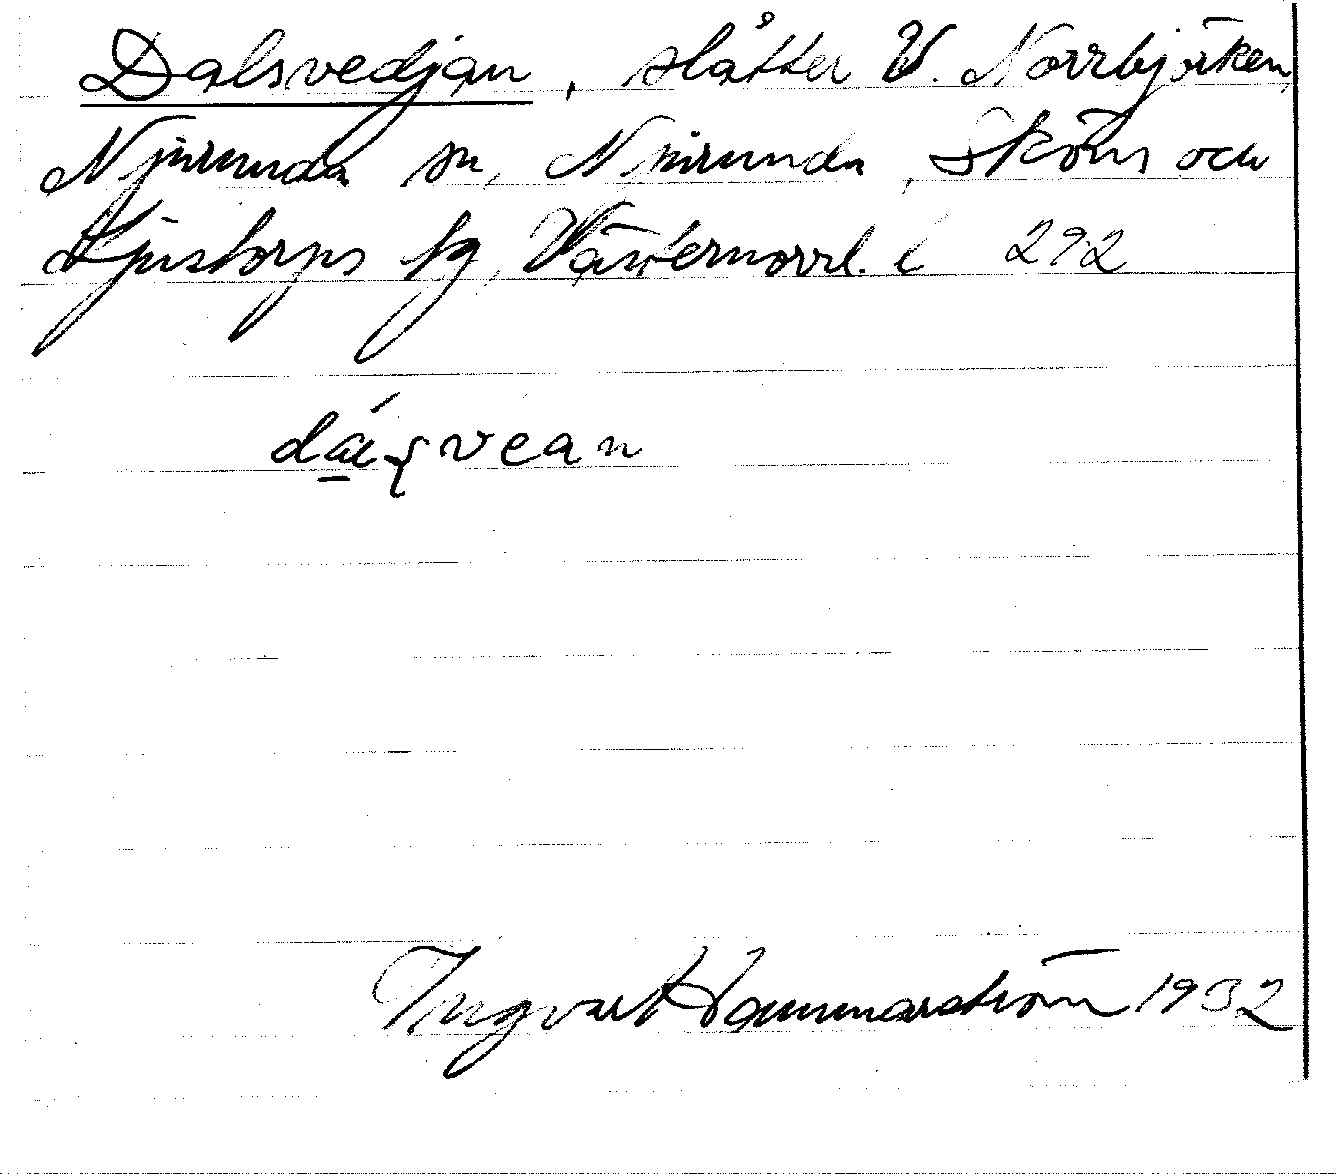 Dalsvedjan, slåtter V. Norrbjörken,
Njurunda sn, Njurunda, Sköns och
Ljustorps tg, Västernorrl. l 292
vean
Ingvar Hammarström 1932